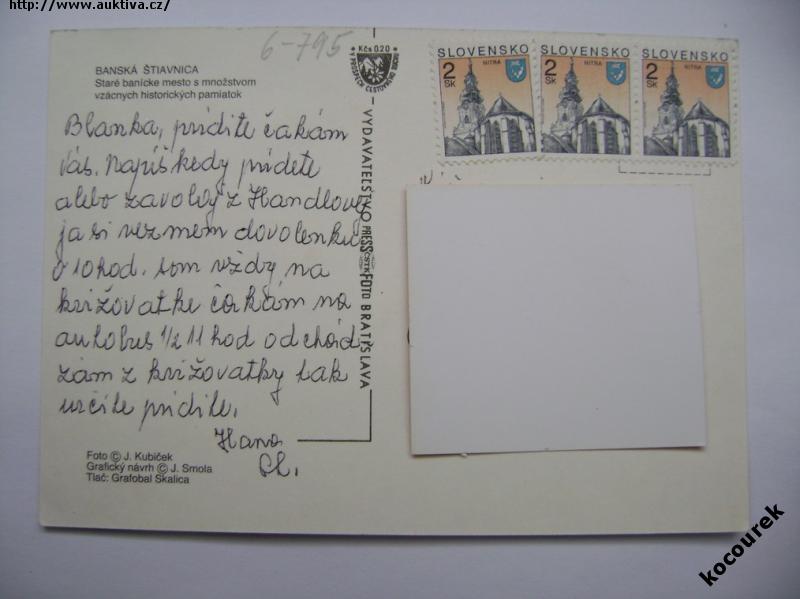 http://www.auktiva.cz/
6-795
BANSKÁ ŠTIAVNICA
Staré banícke mesto s množstvom
vzácnych historických pamiatok
Kčs 0,20
V PROSPECH CESTOVNÉHO RUCHU
SLOVENSKO
NITRA
2
SK
SLOVENSKO
NITRA
2
SK
SLOVENSKO
NITRA
2
SK
Blanka, prídite čakám
Vás. Napíš kedy prídete
alebo zavoláj z Handlovej
ja si vezmem dovolenku
o 10 hod. som vždy na
križovatke čakám na
autobus 1/2 11 hod odchád
zám z križovatky tak
určite prídite.
Hana
Ch.
VYDAVATEĽSTVO PRESSFOTO BRATISLAVA
ČSTK
Foto © J. Kubíček
Grafický návrh © J. Smola
Tlač: Grafobal Skalica
kocourek